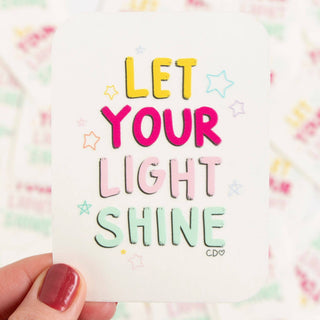 LET
YOUR
LIGHT
SHINE
CD♡